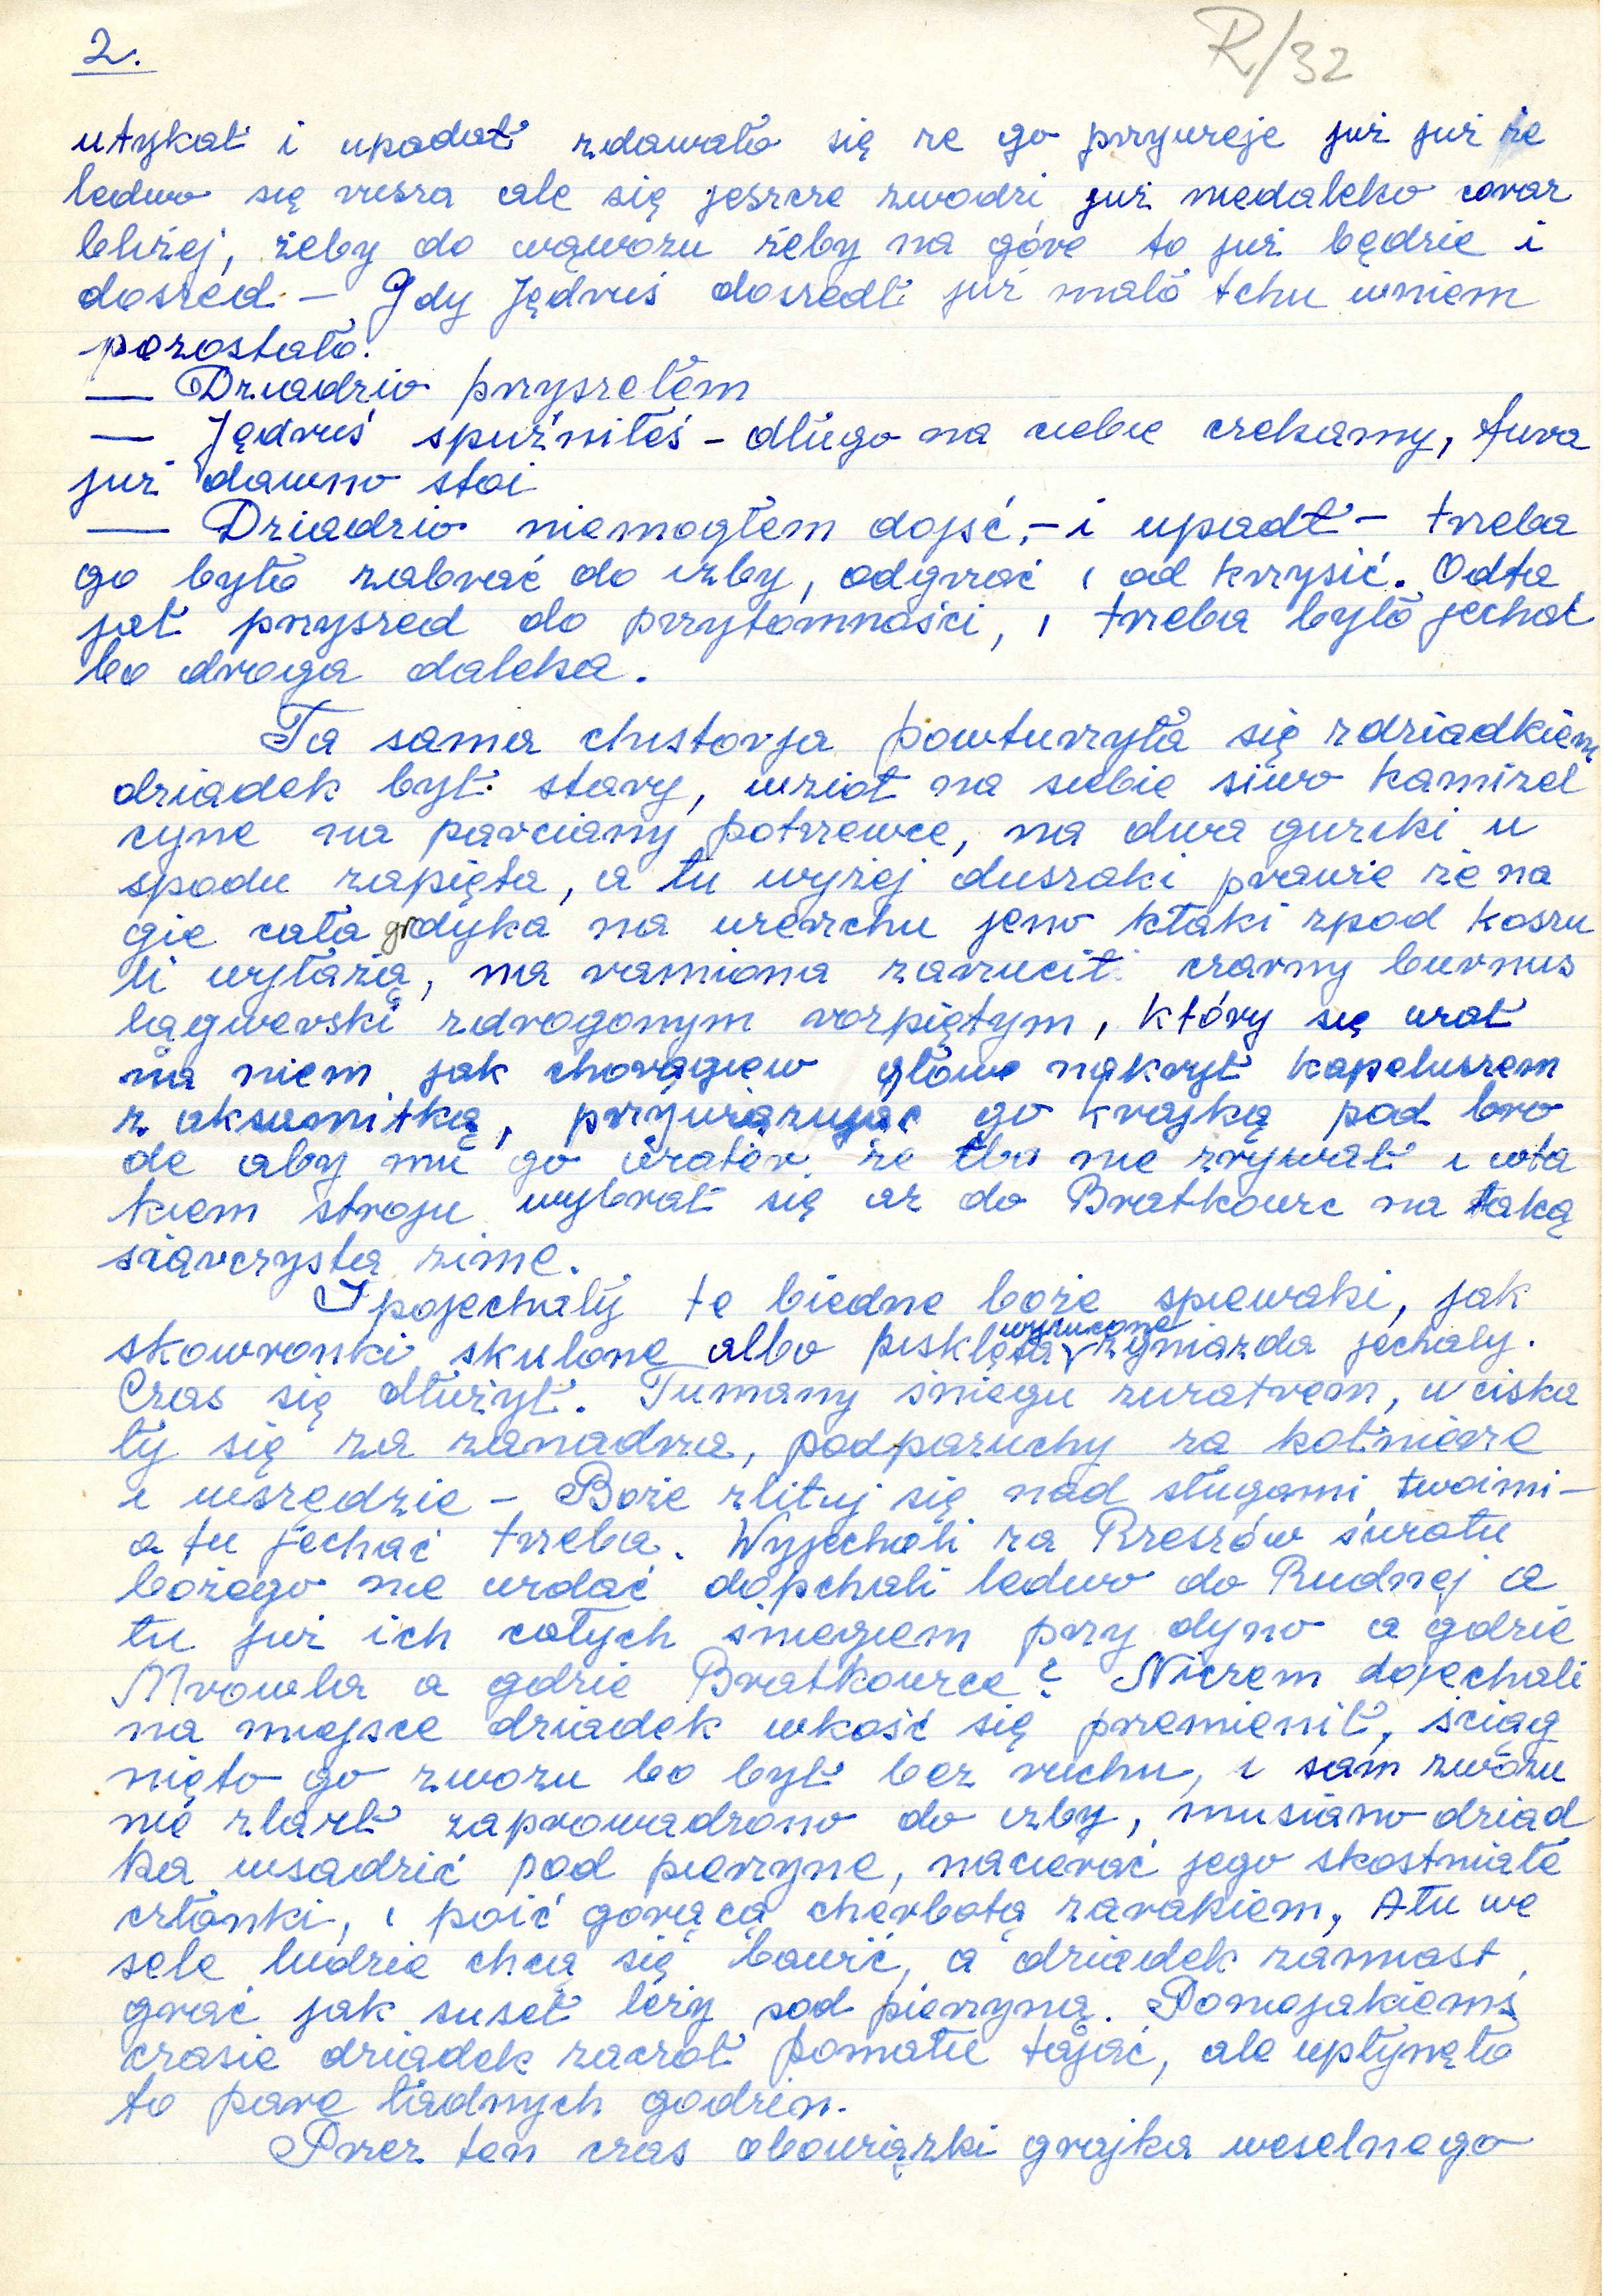 2.
R/32
utykał i upadał zdawało się ze go przywieje już już że
ledwo się rusza ale się jeszcze zwodzi już niedaleko coraz
bliżej, żeby do wąwozu żeby na góre to już będzie i
doszed – Gdy Jędruś doszedł już mało tchu wniem
pozostało.
— Dziadzio przyszełem
— Jędruś spuźniłeś – długo na ciebie czekamy, fura
już dawno stoi
— Dziadzio niemogłem dojść, – i upadł – trzeba
go było zabrać do izby, odgrzać i od krzysić. Odta
jał przyszed do przytomności, i trzeba było jechać
bo droga daleka.
Ta sama chistorja powturzyła się zdziadkiem
dziadek był stary, wzioł na siebie siwo kamizel
cyne na parciany potrzewce, na dwa guziki u
spodu zapięta, a tu wyżej duszaki prawie że na
gie cała grdyka na wierzchu jeno kłaki zpod koszu
li wyłażą, na ramiona zarzucił czarny burnus
lągwerski zdrogonym rozpiętym, który się wiał
na niem jak chorągiew głowe nakrył kapeluszem
z aksamitką, przywiązując go krajką pod bro
de aby mu go wiater ze łba nie zrywał i wta
kiem stroju wybrał się aż do Bratkowic na taką
siarczystą zime.
I pojechały te biedne boże śpiewaki, jak
skowronki skulone albo pisklęta wyrucone zgniazda jechały.
Czas się dłużył. Tumany śniegu zwiatrem, wciska
ły się za zanadrza, podpazuchy za kołnierze
i wszędzie – Boże zlituj się nad sługami twoimi –
a tu jechać trzeba. Wyjechali za Rzeszów świata
bożego nie widać dopchali ledwo do Rudnej a
tu już ich całych śniegiem przydyno a gdzie
Mrowla a gdzie Bratkowice? Niczem dojechali
na miejsce dziadek wkość się przemienił, ściąg
nięto go zwozu bo był bez ruchu, i sam zwozu
nie zlazł zaprowadzono do izby, musiano dziad
ka wsadzić pod pierzyne, nacierać jego skostniałe
członki, i poić gorącą cherbatą zarakiem, Atu we
sele ludzie chcą się bawić, a dziadek zamiast
grać jak suseł leży pod pierzyną. Poniejakiemś
czasie dziadek zaczoł pomału tajać, ale upłynęło
to pare ładnych godzin.
Przez ten czas obowiązki grajka weselnego